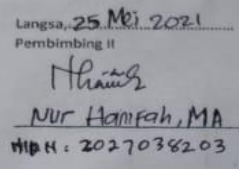 Langsa, 25 Mei 2021
Pembimbing II
Nur Hanifah, MA
NIDN : 2027038203